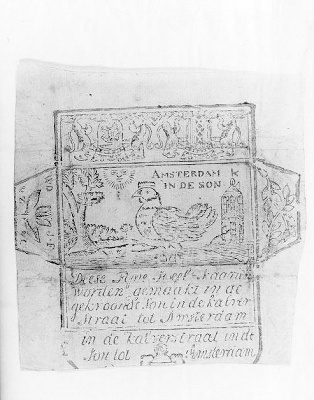 AMSTERDAM
IN DE SON
Diese
worden gemaakt in de
gekroonde Son in de kalver
Straat tot Amsterdam
in de kalverstraat in de
Son tot Amsterdam